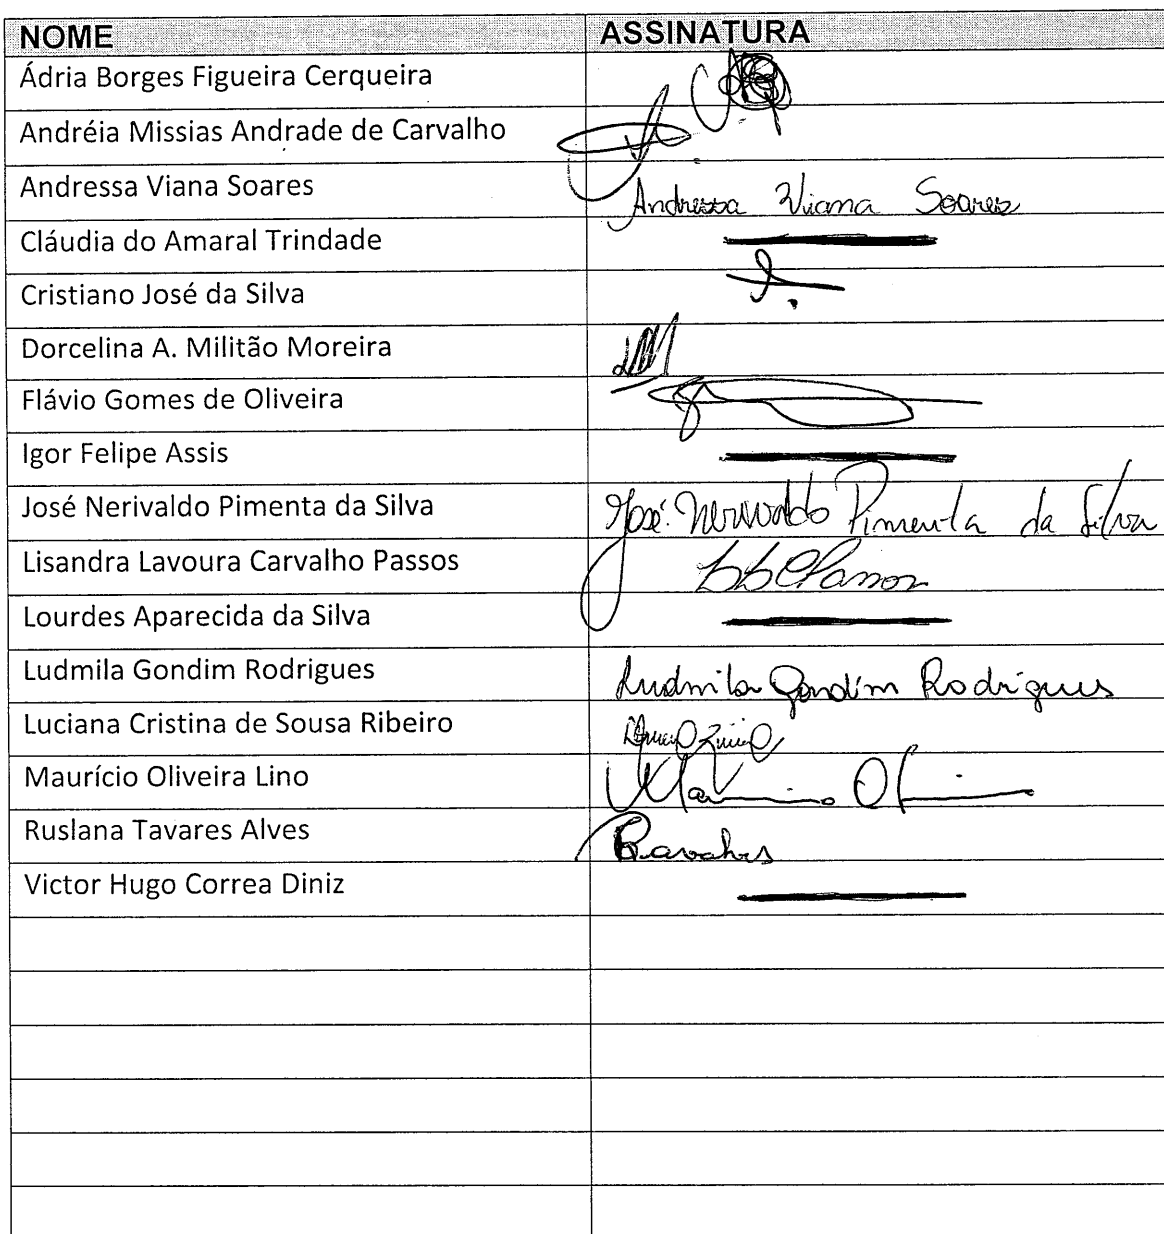 NOME ASSINATURA
Ádria Borges Figueira Cerqueira
Andréia Missias Andrade de Carvalho
Andressa Viana Soares Andressa Viana Soares
Cláudia do Amaral Trindade
Cristiano José da Silva
Dorcelina A. Militão Moreira
Flávio Gomes de Oliveira
Igor Felipe Assis
José Nerivaldo Pimenta da Silva José Nerivaldo Pimenta da Silva
Lisandra Lavoura Carvalho Passos LLCPassos
Lourdes Aparecida da Silva
Ludmila Gondim Rodrigues Ludmila Gondim Rodrigues
Luciana Cristina de Sousa Ribeiro
Maurício Oliveira Lino
Ruslana Tavares Alves
Victor Hugo Correa Diniz